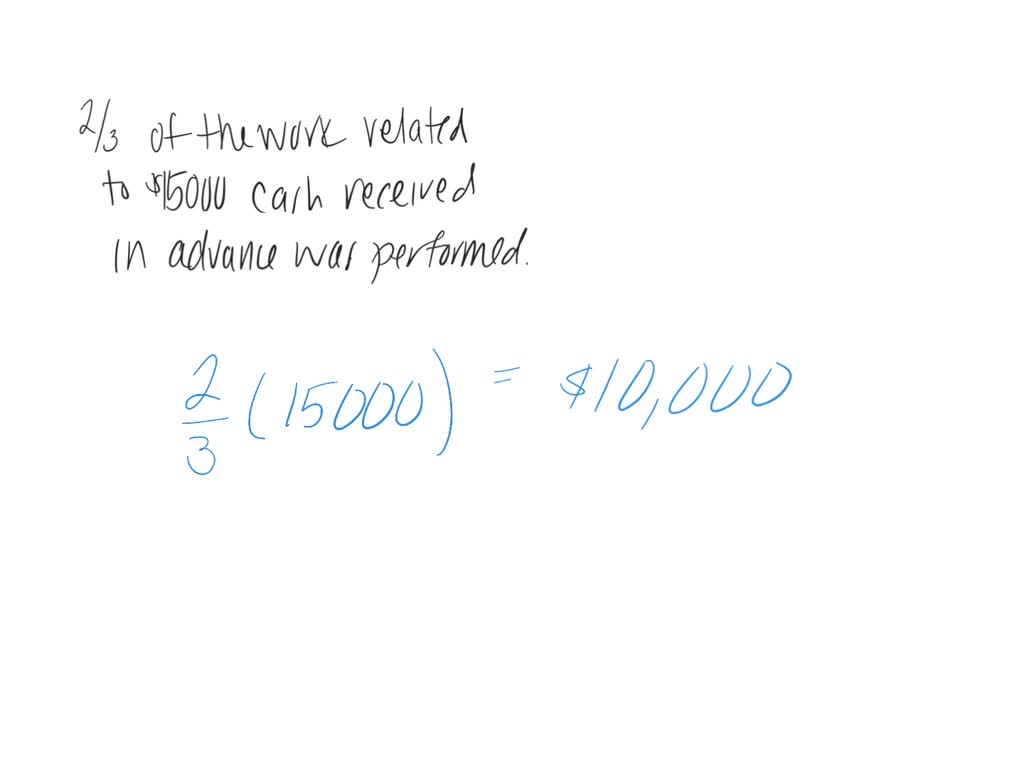 2/3 of the work related
to $15000 cash received
in advance was performed.
2/3 (15000) = $10,000